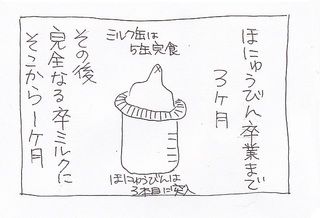 ほにゅうびん卒業まで
3ヶ月
ミルク缶は
5缶完食
ほにゅうびんは
3本目に突入
その後
完全なる卒ミルクに
そこから1ヶ月